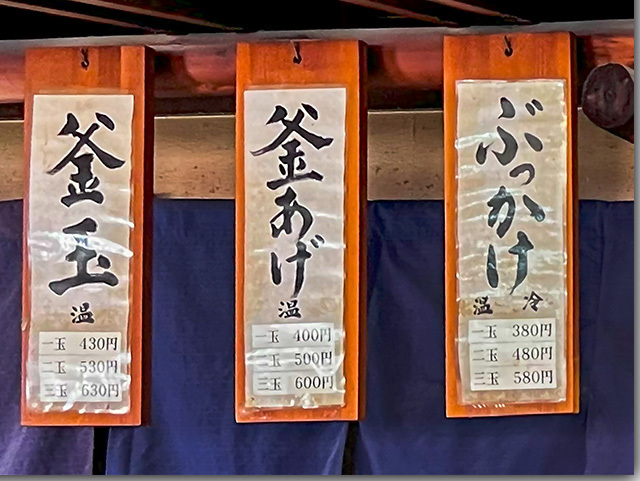 釜玉
温
一玉 430円
二玉 530円
三玉 630円
釜あげ
温
一玉 400円
二玉 500円
三玉 600円
ぶっかけ
温 冷
一玉 380円
二玉 480円
三玉 580円